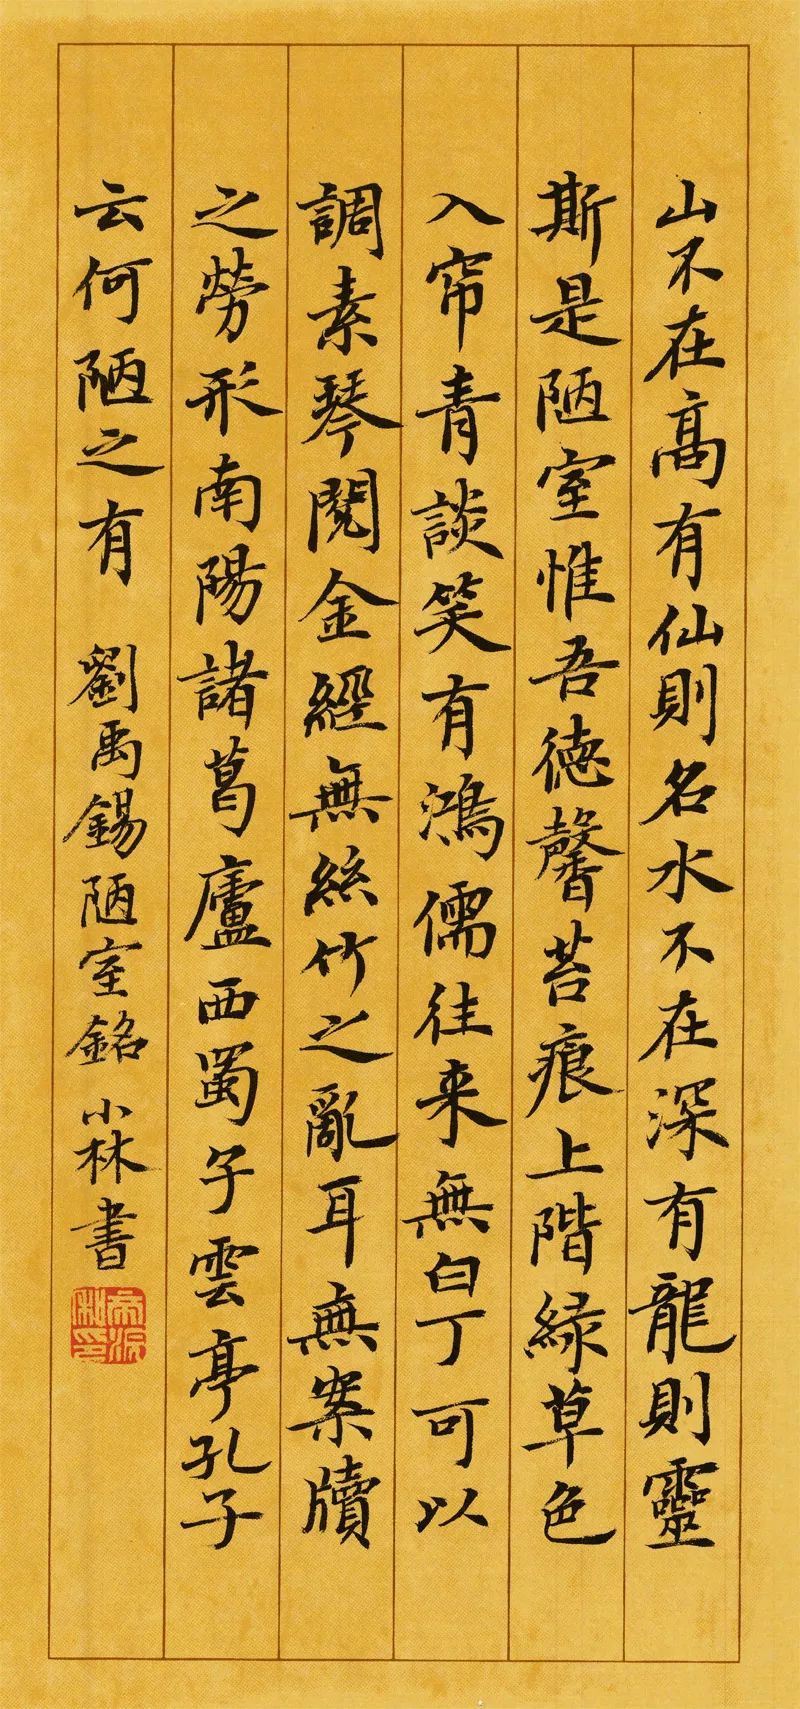 山不在高有仙則名水不在深有龍則靈
斯是陋室惟吾德馨苔痕上階緑草色
入帘青談笑有鴻儒往来無白丁可以
調素琴閲金經無絲竹之亂耳無案牘
之勞形南陽諸葛廬西蜀子雲亭孔子
云何陋之有 劉禹錫陋室銘 小林書